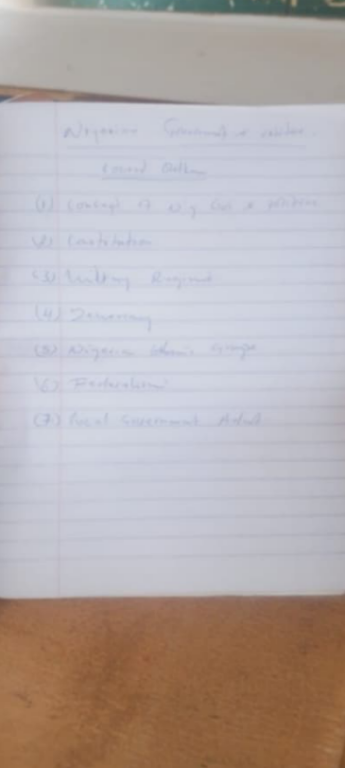 Nigerian Government & Politics.
Course Outline
(1) Concept of Nig Gov & Politics
(2) Constitution
(3) Military
(4) Democracy
(5) Nigerian Ethnic Groups
(6) Federalism
(7) Local Government